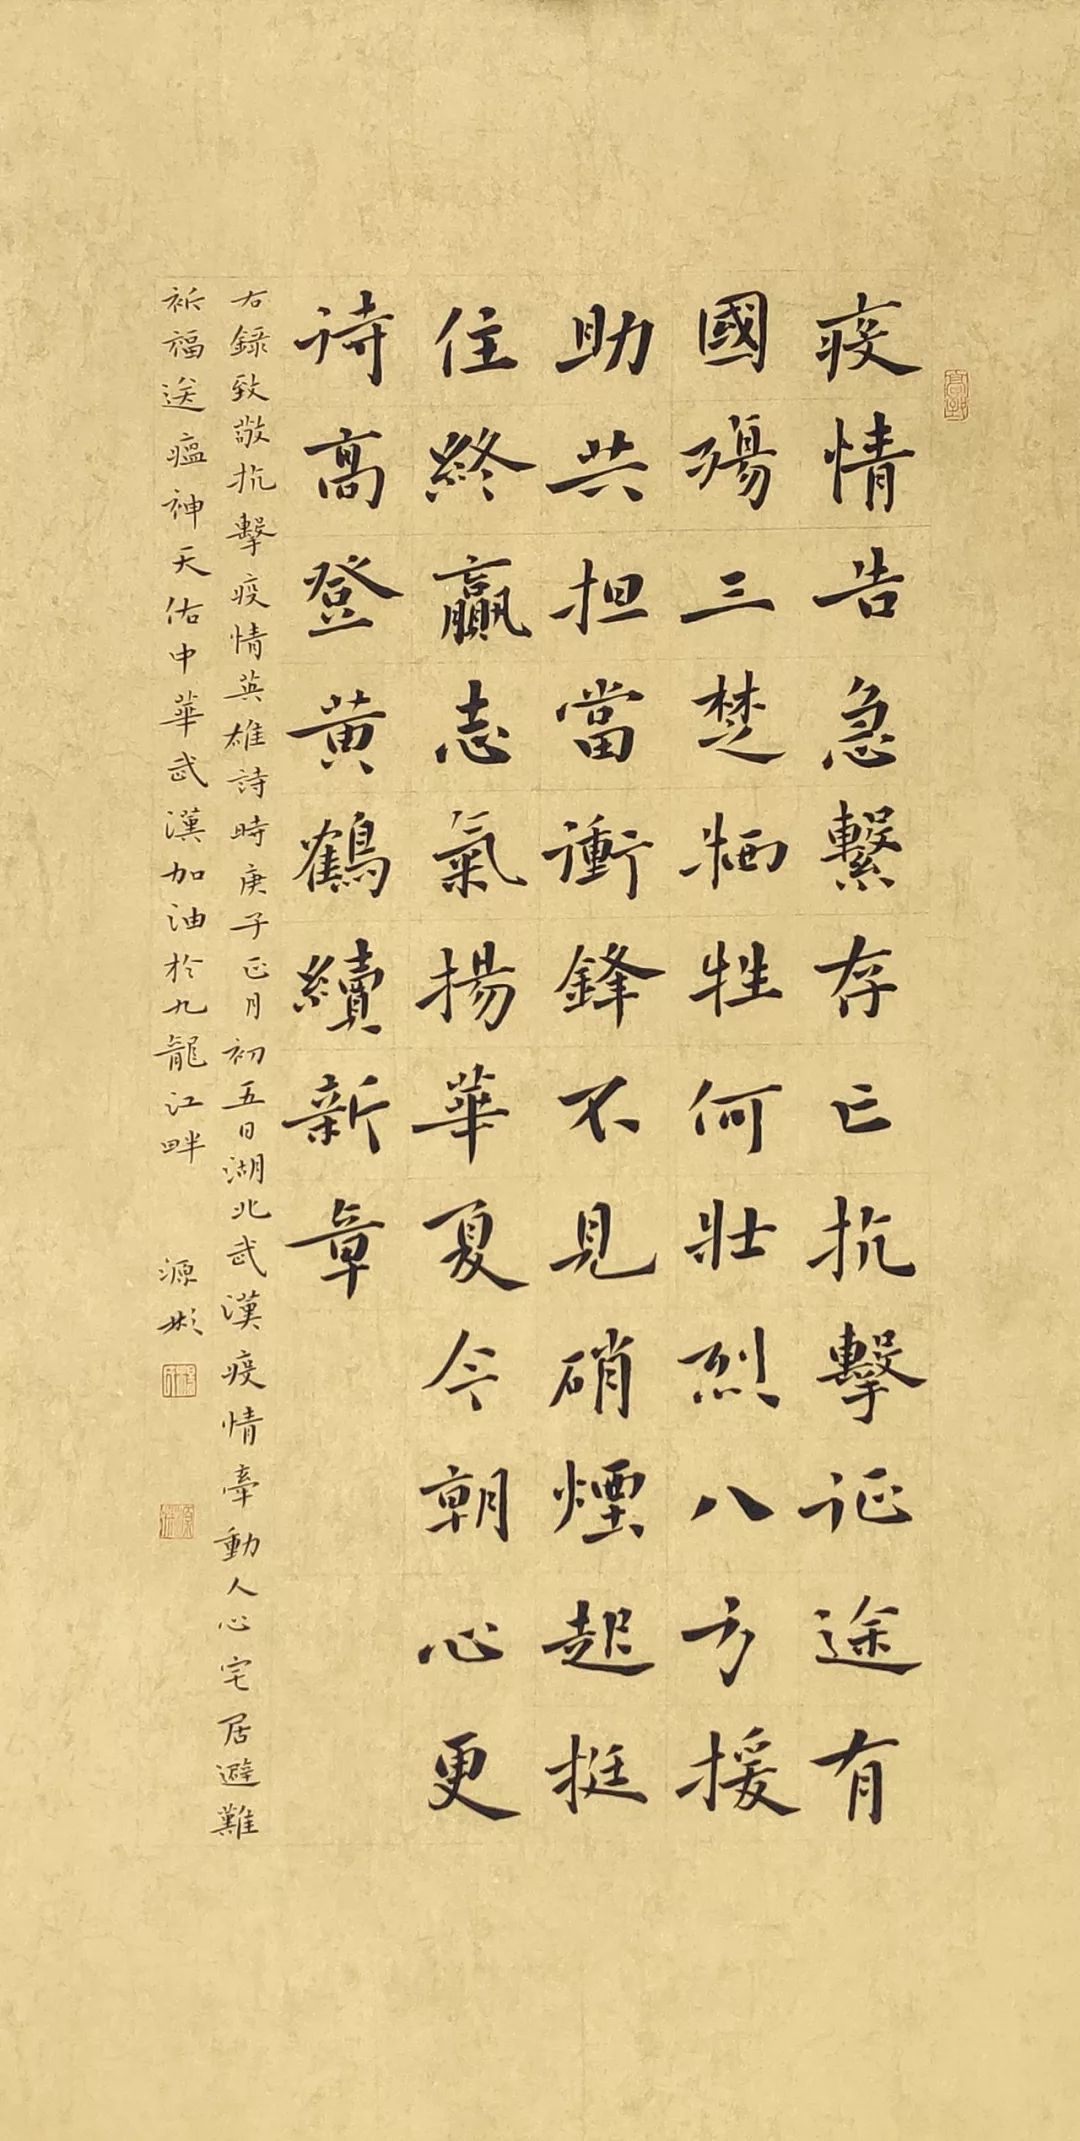 疫情告急繫存亡抗擊征途有
國殤三楚牺牲何壯烈八方援
助共担當衝鋒不見硝煙起挺
住終贏志氣揚華夏今朝心更
诗高登黄鶴續新章
右錄致敬抗擊疫情英雄詩時庚子正月初五日湖北武漢疫情牽動人心宅居避難
祈福送瘟神天佑中華武漢加油於九龍江畔 源彬